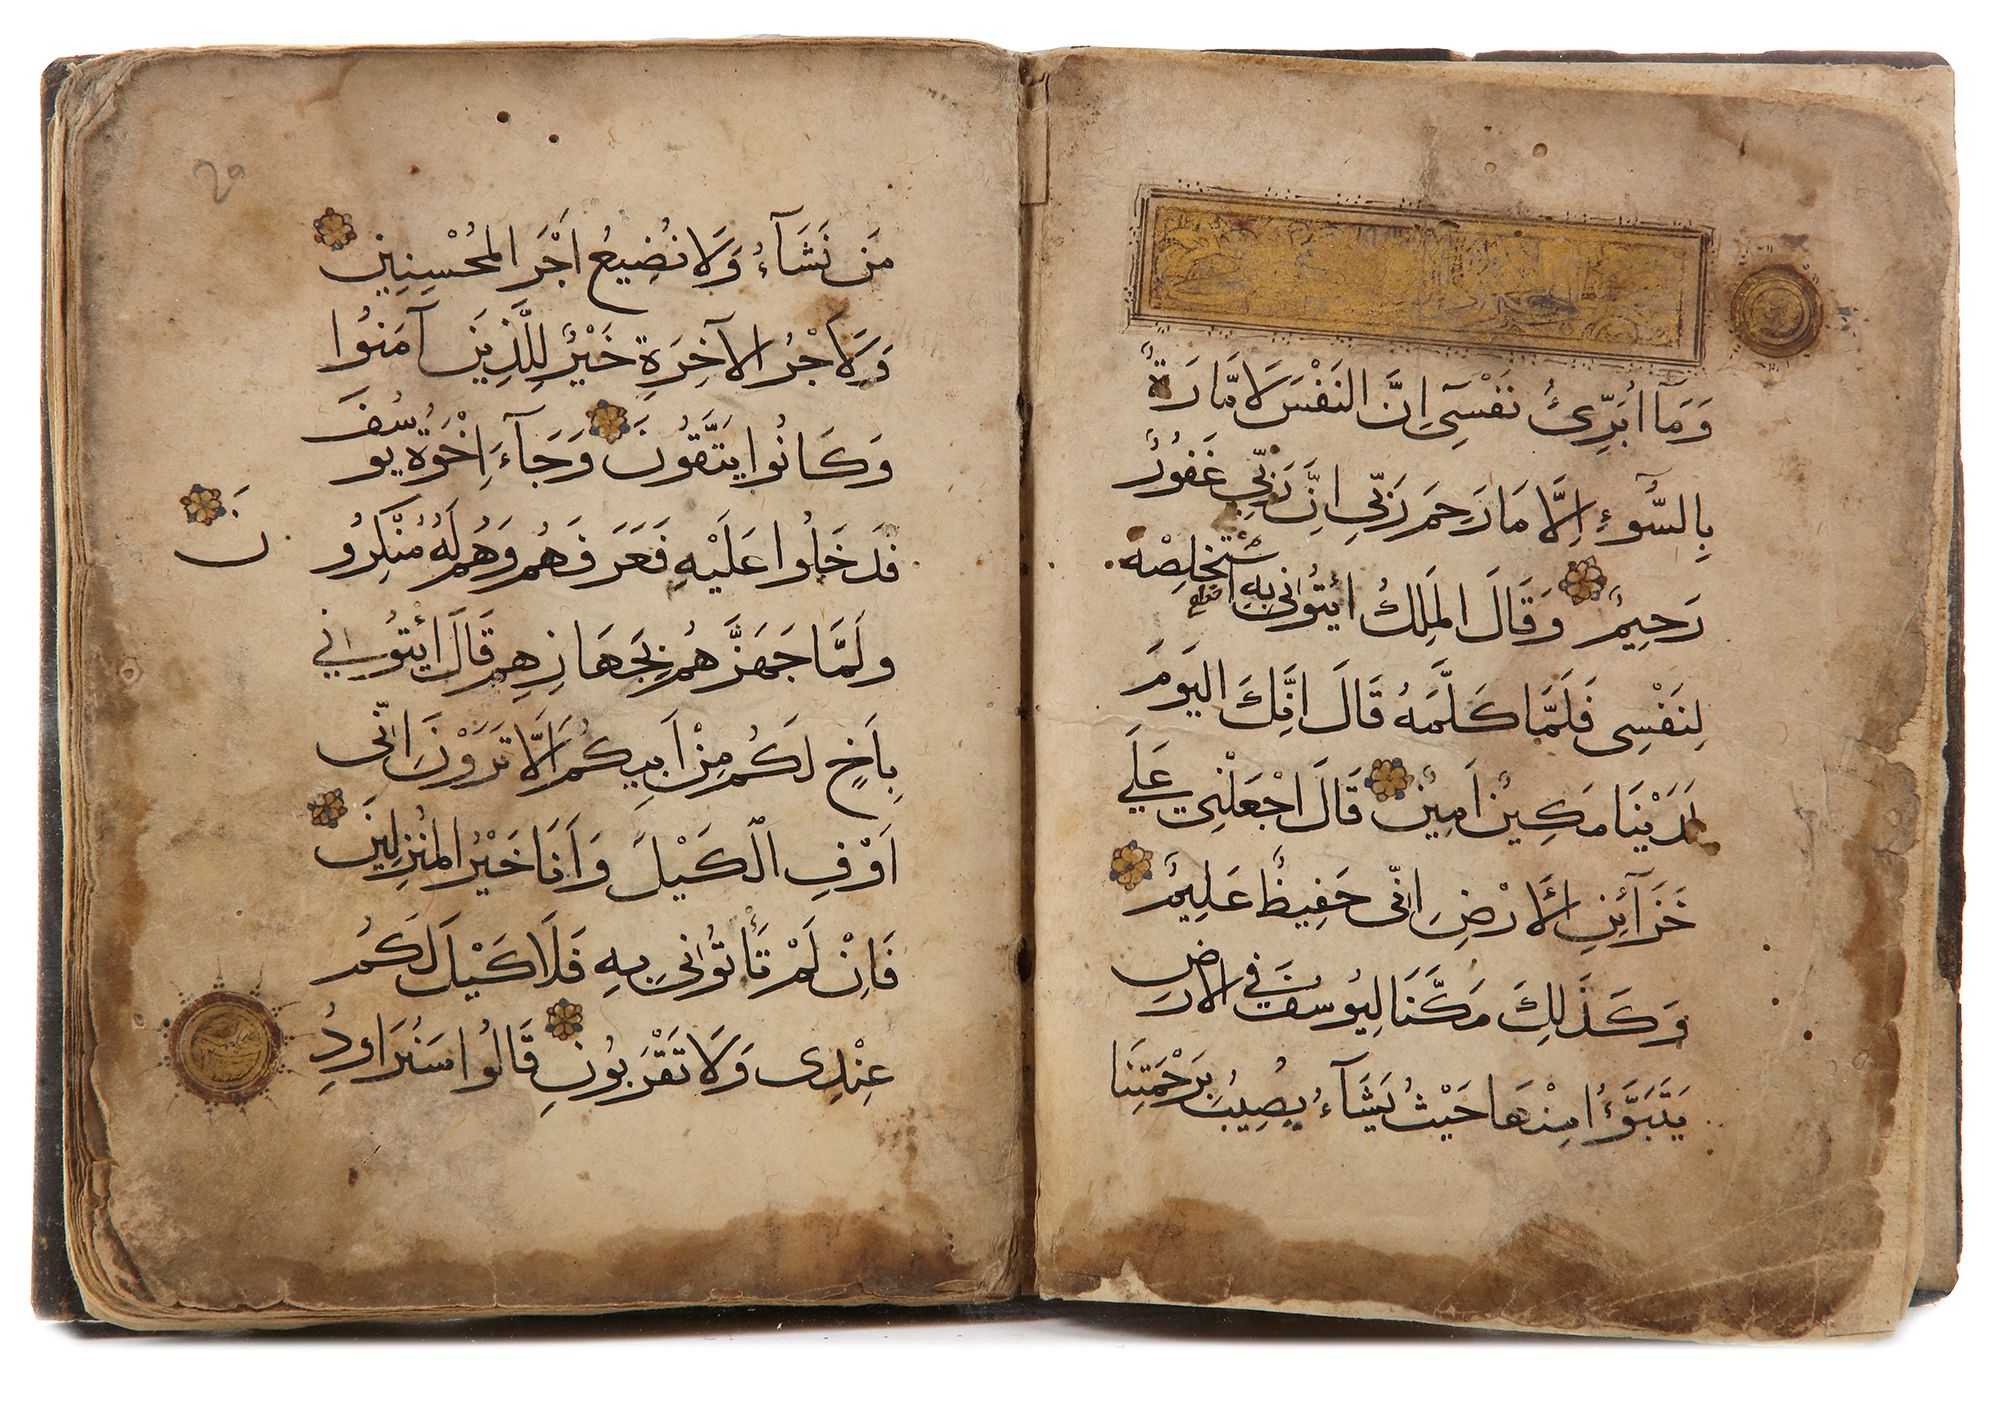 وَمَا أُبَرِّئُ نَفْسِي إِنَّ النَّفْسَ لَأَمَّارَةٌ
بِالسُّوءِ إِلَّا مَا رَحِمَ رَبِّي إِنَّ رَبِّي غَفُورٌ
رَحِيمٌ وَقَالَ الْمَلِكُ ائْتُونِي بِهِ أَسْتَخْلِصْهُ
لِنَفْسِي فَلَمَّا كَلَّمَهُ قَالَ إِنَّكَ الْيَوْمَ
لَدَيْنَا مَكِينٌ أَمِينٌ قَالَ اجْعَلْنِي عَلَى
خَزَآئِنِ الْأَرْضِ إِنِّي حَفِيظٌ عَلِيمٌ
وَكَذَلِكَ مَكَّنَّا لِيُوسُفَ فِي الْأَرْضِ
يَتَبَوَّؤُا مِنْهَا حَيْثُ يَشَآءُ نُصِيبُ بِرَحْمَتِنَا
مَنْ نَشَآءُ وَلَا نُضِيعُ أَجْرَ الْمُحْسِنِينَ
وَلَأَجْرُ الْآخِرَةِ خَيْرٌ لِلَّذِينَ آمَنُوا
وَكَانُوا يَتَّقُونَ وَجَآءَ إِخْوَةُ يُوسُفَ
فَدَخَلُوا عَلَيْهِ فَعَرَفَهُمْ وَهُمْ لَهُ مُنْكِرُونَ
وَلَمَّا جَهَّزَهُمْ بِجَهَازِهِمْ قَالَ ائْتُونِي
بِأَخٍ لَكُمْ مِنْ أَبِيكُمْ أَلَا تَرَوْنَ أَنِّي
أُوفِ الْكَيْلَ وَأَنَا خَيْرُ الْمُنْزِلِينَ
فَإِنْ لَمْ تَأْتُونِي بِهِ فَلَا كَيْلَ لَكُمْ
عِنْدِي وَلَا تَقْرَبُونِ قَالُوا سَنُرَاوِدُ